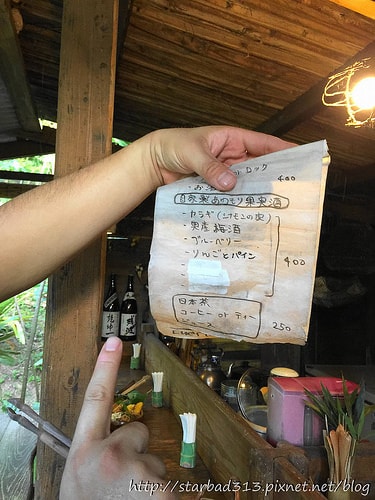 ロック
400
自家製あわもり果実酒
・カラギ(シナモンの実)
・奥産梅酒
・ブルーベリー
・りんごとパイン
400
日本茶
コーヒー or ティー
ジュース
250
http://starbad313.pixnet.net/blog